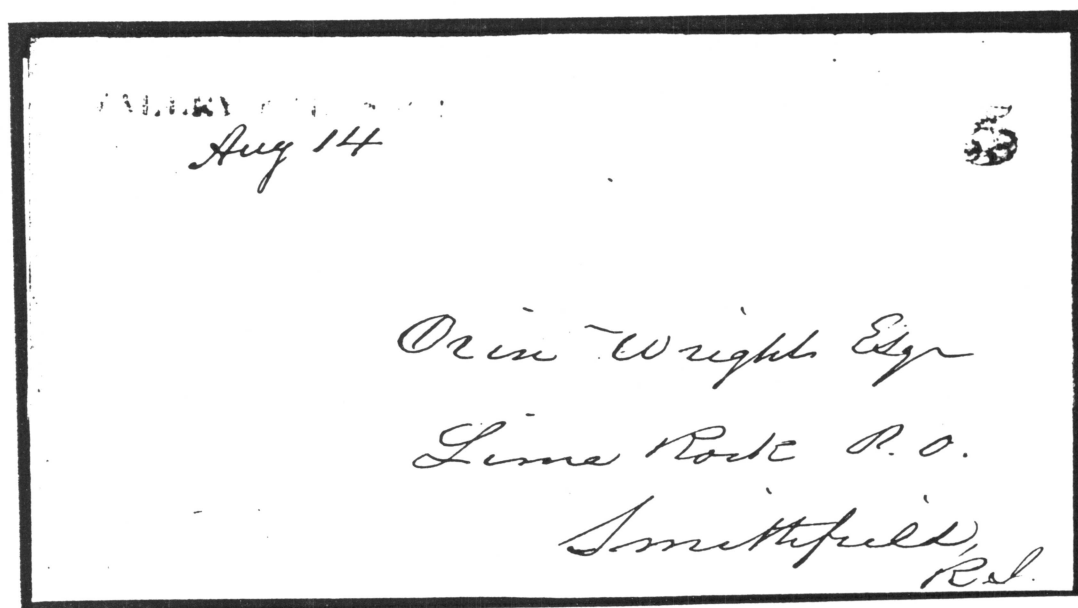 VALLEY
Aug 14
5
Orin Wright Esqr
Lime Rock P.O.
Smithfield,
R.I.